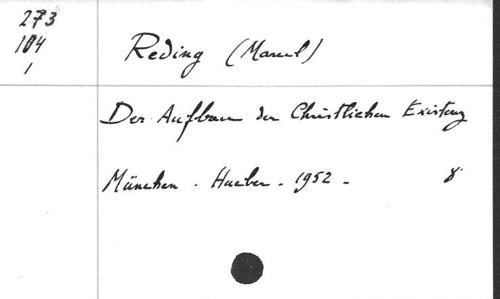 273
104
1
Reding (Marcel)
Der Aufbau der Christlichen Existenz
München . Hueber - 1952 -
8°